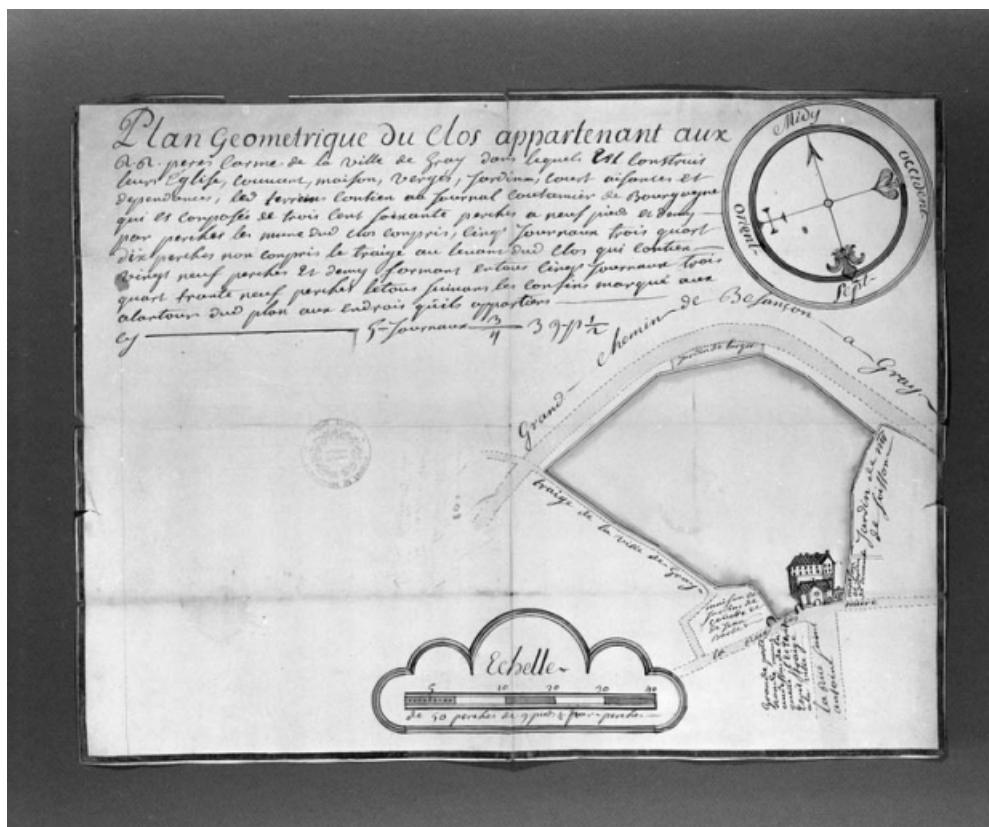 Plan Geometrique du Clos appartenant aux
R.R. peres Carme de la ville de Gray dans lequel Est construis
leurs Eglise, couvant, maison, verger, Jardins, court aisances et
dependances, led terrein contien au Journal coutumier de Bourgogne
qui Es composée de trois Cent soixante perches a neuf pied et demy
par perches les mure dud clos compris, Cinq Journaux trois quart
dix perches non compris le traige au levant dud Clos qui contien
vingt neuf perches Et demy formant entous Cinq Journaux trois
quart trante neuf perches letous suivans les confins marqué aux
alantour dud plan aux endrois quils appartiens
Cy 5 Journaux 3/4 39 p 1/2
Midy
occident
Sept
orient
Grand chemin de Besançon a Gray
Jardin de
traige de la ville de Gray
Jardin de
maison
Jardin de
de Jean
Grande porte
la rue
Echelle
5 10 20 30 40
de 50 perches de 9 pieds 1/2 par perches